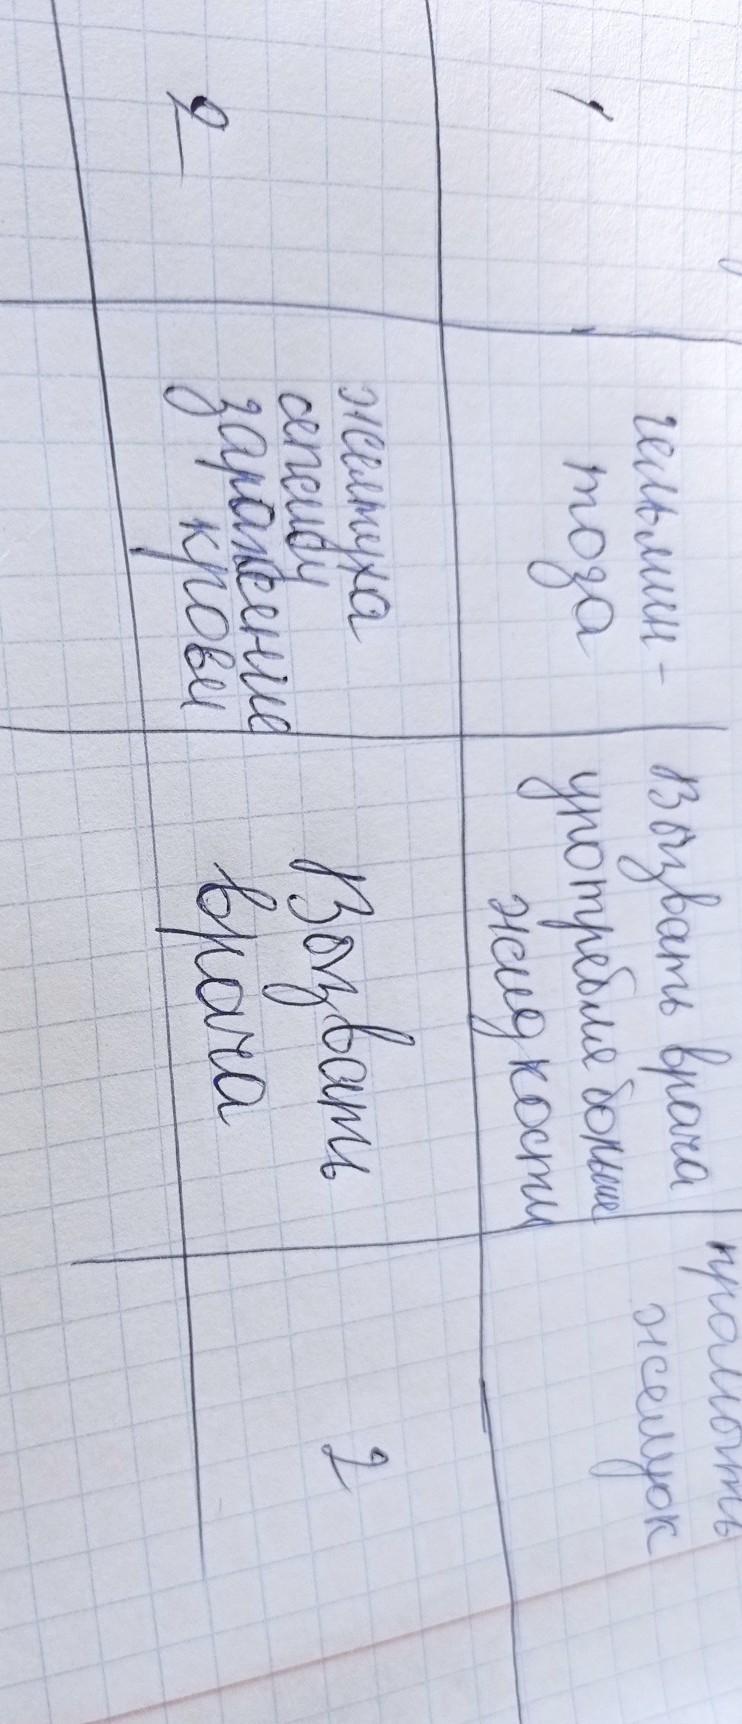 1
гельмин-
тоза
Вызвать врача
употребля больше
жидкости
промыть
желудок
2
желтуха
сепсису
заражение
крови
Вызвать
врача
2